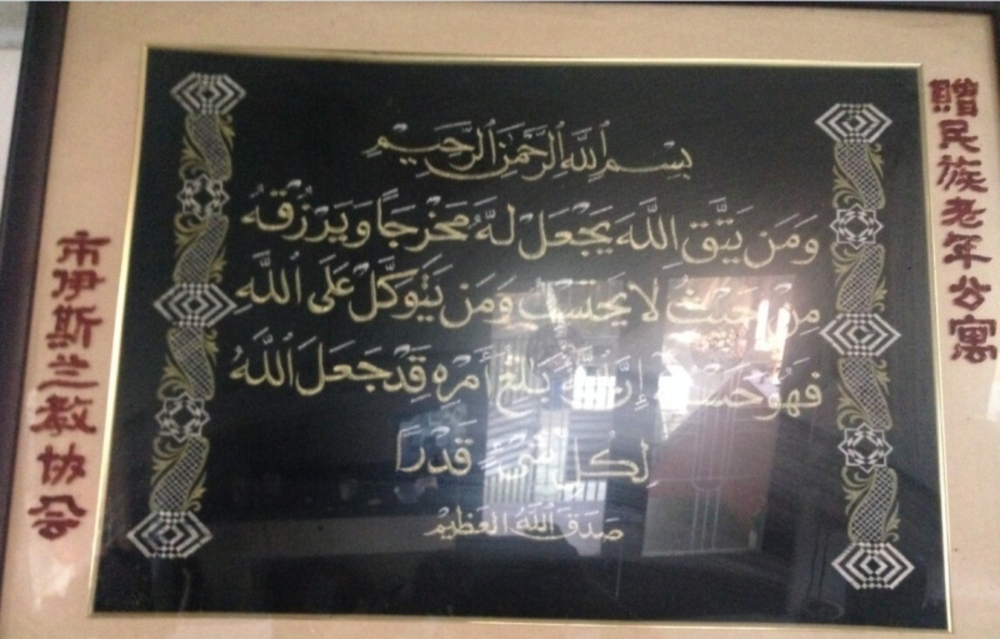 贈民族老年公寓
بِسْمِ اللَّهِ الرَّحْمَٰنِ الرَّحِيمِ
وَمَن يَتَّقِ اللَّهَ يَجْعَل لَّهُ مَخْرَجًا وَيَرْزُقْهُ
مِنْ حَيْثُ لَا يَحْتَسِبُ وَمَن يَتَوَكَّلْ عَلَى اللَّهِ
فَهُوَ حَسْبُهُ إِنَّ اللَّهَ بَالِغُ أَمْرِهِ قَدْ جَعَلَ اللَّهُ
لِكُلِّ شَيْءٍ قَدْرًا
صَدَقَ اللَّهُ الْعَظِيمُ
市伊斯兰教协会